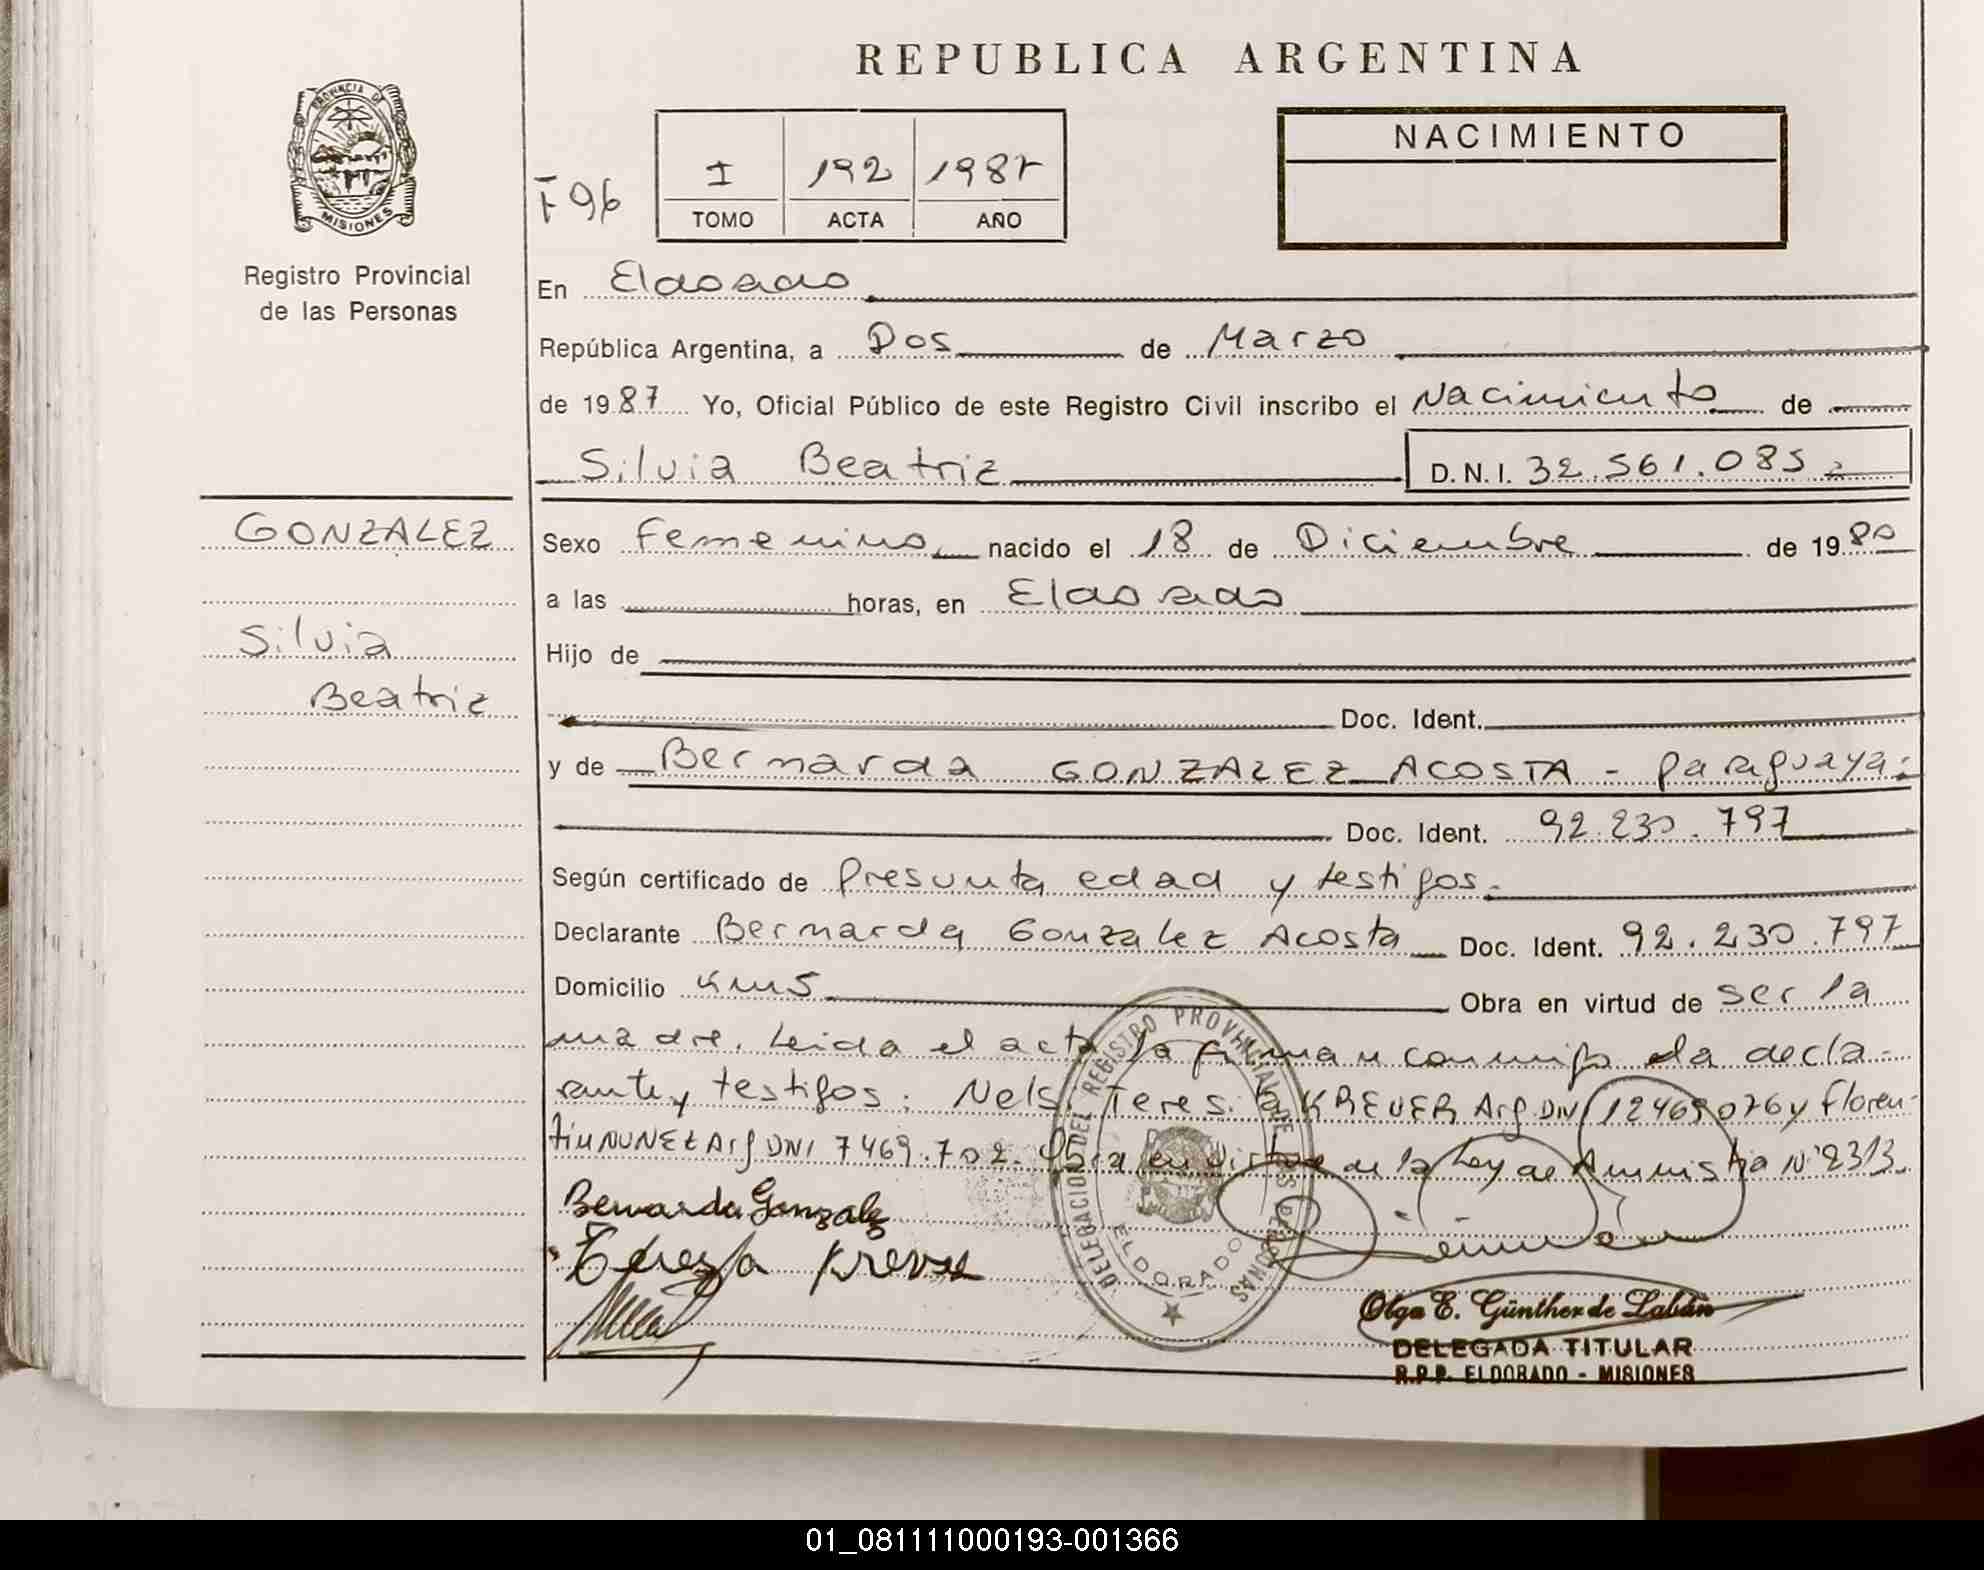 REPUBLICA ARGENTINA
PROVINCIA DE
MISIONES
Registro Provincial
de las Personas
F 96
I 192 1987
TOMO ACTA AÑO
NACIMIENTO
En Eldorado
República Argentina, a Dos de Marzo
de 1987 Yo, Oficial Público de este Registro Civil inscribo el Nacimiento de
Silvia Beatriz D.N.I. 32.561.085
GONZALEZ
Silvia
Beatriz
Sexo Femenino nacido el 18 de Diciembre de 1980
a las horas, en Eldorado
Hijo de
Doc. Ident.
y de Bernarda GONZALEZ ACOSTA - paraguaya
Doc. Ident. 92.230.797
Según certificado de Presunta edad y testigos.
Declarante Bernarda Gonzalez Acosta Doc. Ident. 92.230.797
Domicilio Km 5 Obra en virtud de ser la
madre. Leida el acta la firman conmigo la decla-
rante y testigos: Teres KREVER Arg DNI 12469076 y Floren-
tin NUNEZ Arg DNI 7469.702. Obra en virtud de la Ley de Amnistia N° 2313
Bernarda Gonzalez
Teresa Krever
DELEGACION DEL REGISTRO PROVINCIAL DE LAS PERSONAS
ELDORADO
Olga E. Günther de Labán
DELEGADA TITULAR
R.P.P. ELDORADO - MISIONES
01_081111000193-001366